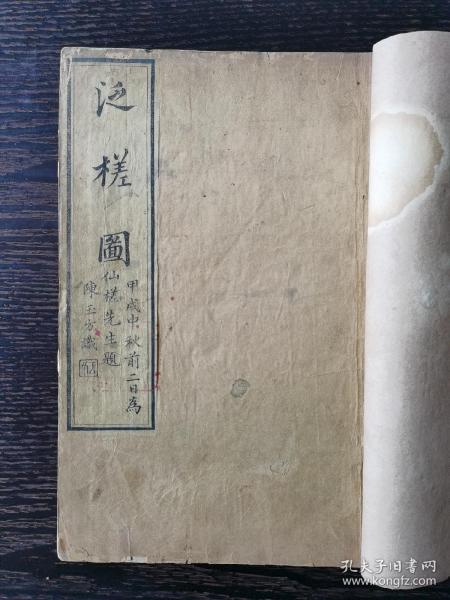 泛槎圖
甲戌中秋前二日為
仙槎先生題
陳玉方識
孔夫子旧书网
www.kongfz.com